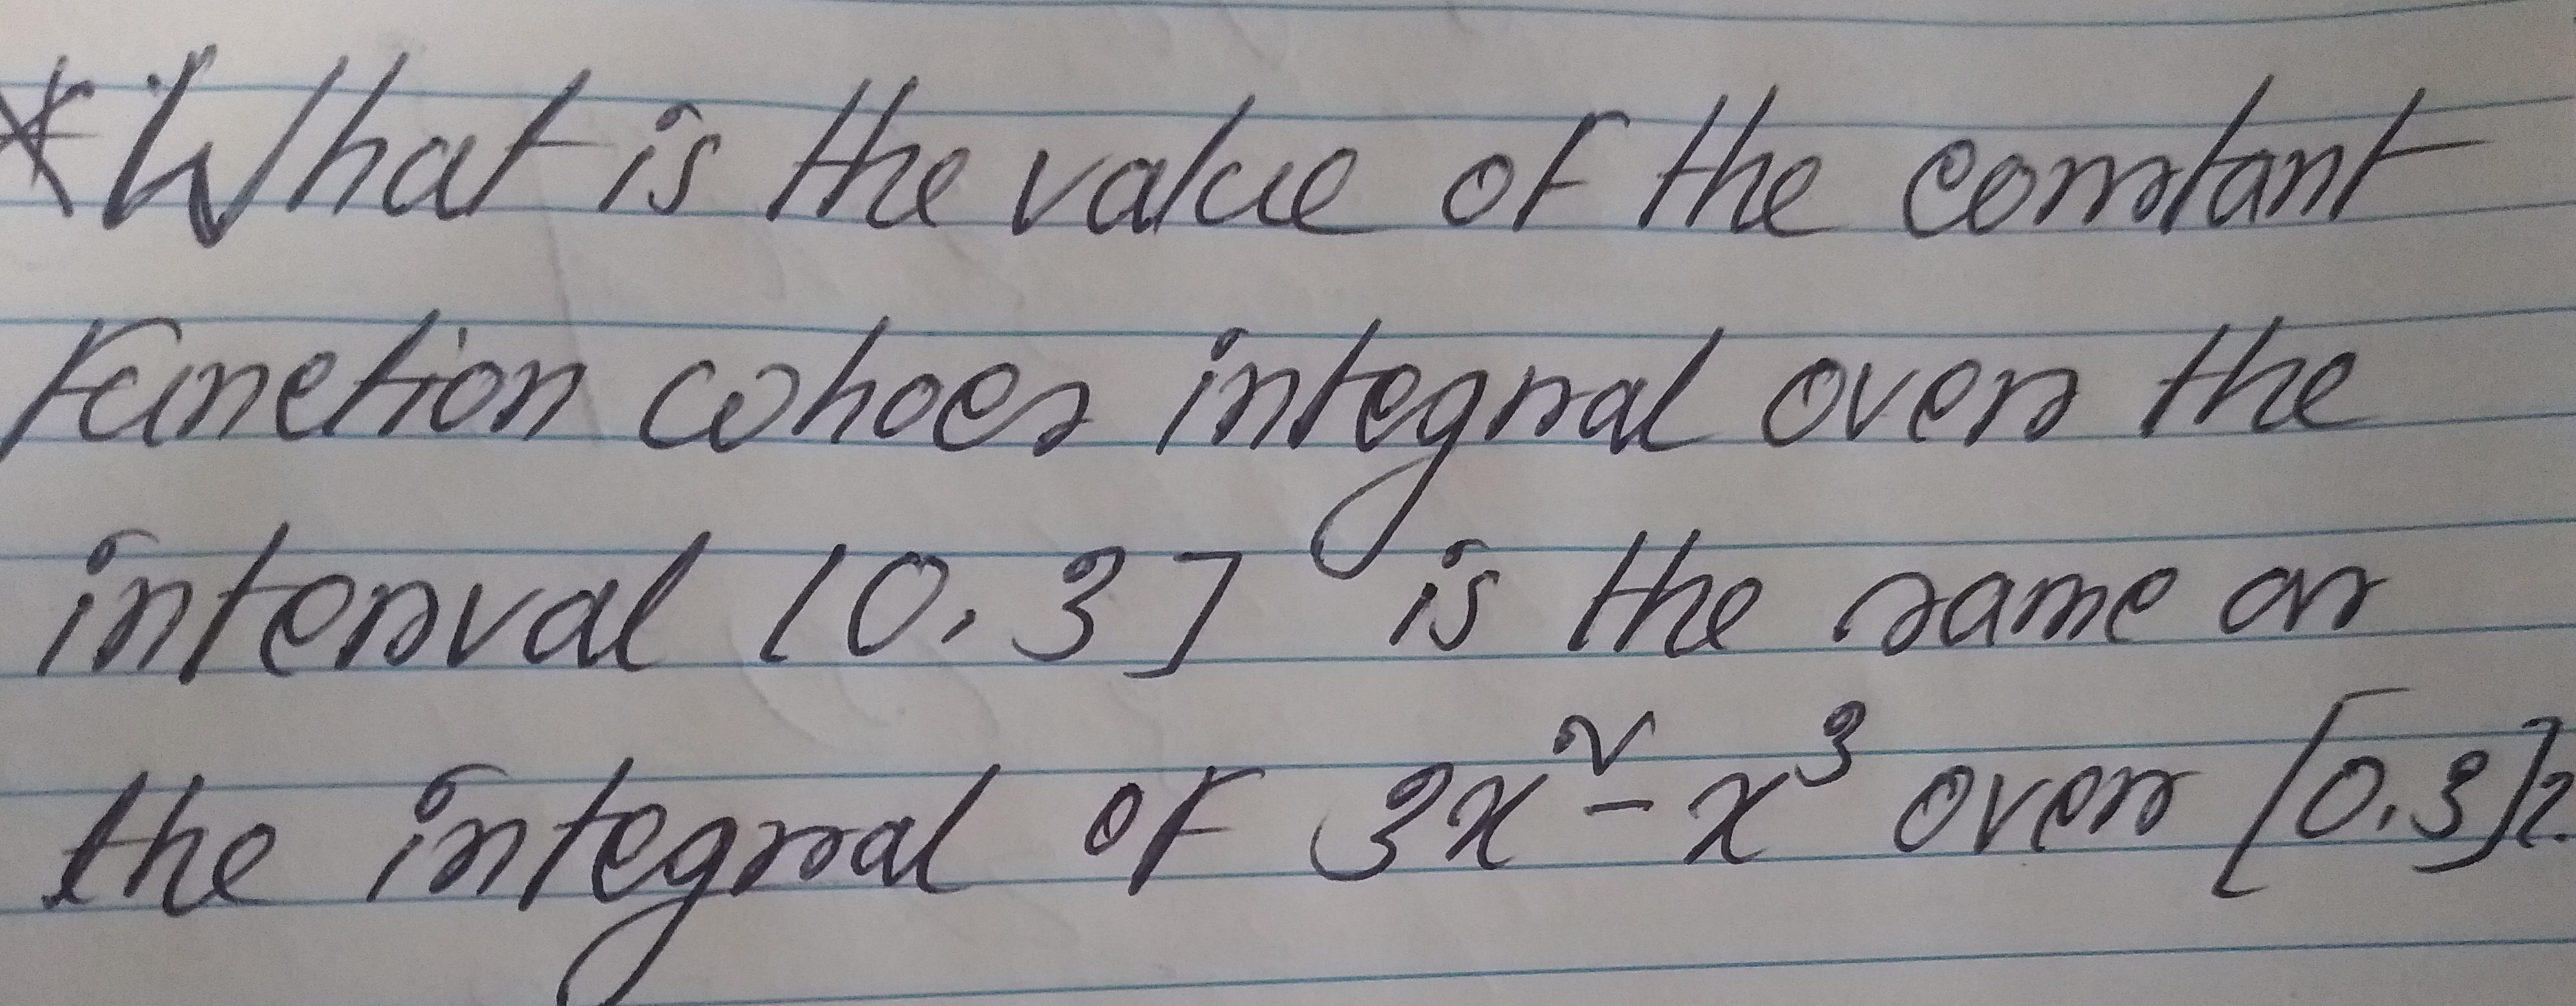 * What is the value of the constant
function whoes integral over the
interval [0, 3] is the same as
the integral of 3x² - x³ over [0,3]?